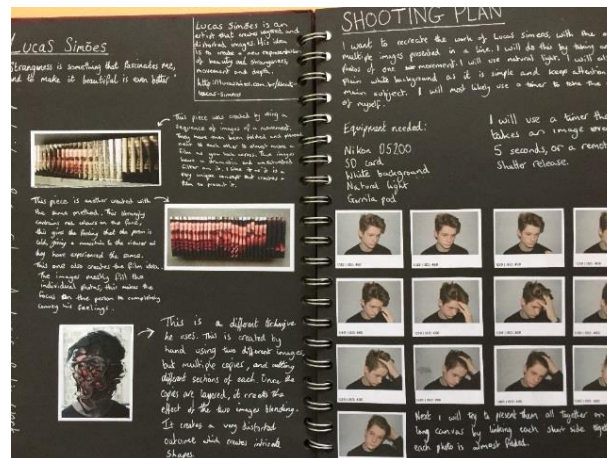 Lucas Simões
Strangeness is something that fascinates me,
and to make it beautiful is even better'
Lucas Simões is an
artist that creates layered and
distorted images. His idea
is to create a new representation
of beauty and strangeness,
movement and depth.
This piece was created by using a
sequence of images of a movement.
They have then been folded and placed
next to each other to almost make a
film as you look across. The images
have a dramatic and
filter on it. I like it as it is a
very unique concept that creates a
film to present it.
This piece is another created with
the same method. This strongly
contains red colours on the face,
this gives the feeling that the person is
cold, giving a connection to the viewer as
they have experienced the same.
This one also creates the film idea.
The images mostly fill the
individual photos, this makes the
focus on the person to completely
convey his feelings.
This is a different technique
he uses. This is created by
hand using two different images,
but multiple copies, and cutting
different sections of each. Once the
copies are layered, it creates the
effect of the two images blending.
It creates a very distorted
outcome which creates intricate
shapes.
SHOOTING PLAN
I want to recreate the work of Lucas Simoes, with the
multiple images presented in a line. I will do this by taking
photos of one movement. I will use natural light. I will
plain white background as it is simple and keeps attention
main subject. I will most likely use a timer to take the
of myself.
Equipment needed:
Nikon D5200
SD card
White background
Natural light
Gorilla pod
I will use a timer that
takes an image every
5 seconds, or a remote
shutter release.
Next I will try to present them all together on
long canvas by linking each short side together
each photo is almost folded.